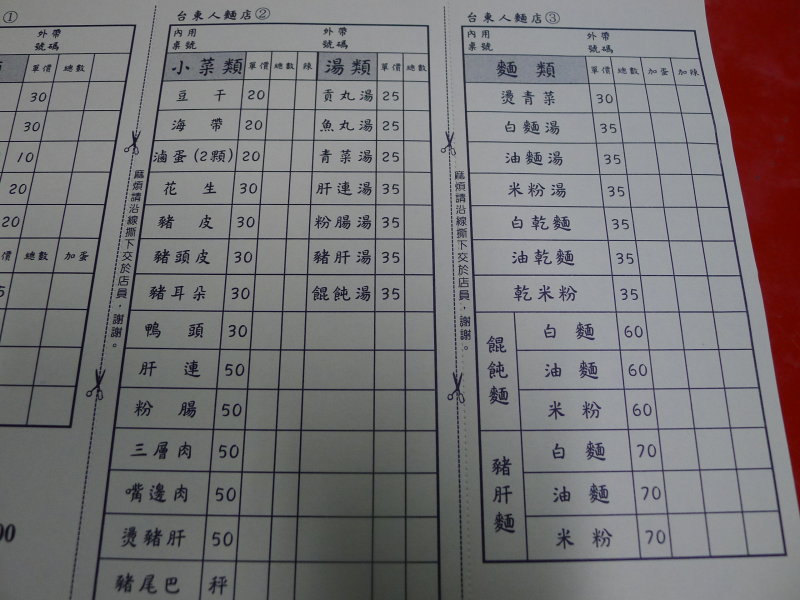 ①
外帶
號碼
類 單價 總數
30
30
10
20
20
價 總數 加蛋
5
00
台東人麵店②
內用 外帶
桌號 號碼
小菜類 單價 總數 辣 湯類 單價 總數
豆干 20 貢丸湯 25
海帶 20 魚丸湯 25
滷蛋(2顆) 20 青菜湯 25
花生 30 肝連湯 35
豬皮 30 粉腸湯 35
豬頭皮 30 豬肝湯 35
豬耳朵 30 餛飩湯 35
鴨頭 30
肝連 50
粉腸 50
三層肉 50
嘴邊肉 50
燙豬肝 50
豬尾巴 秤
麻煩請沿線撕下交於店員，謝謝。
台東人麵店③
內用 外帶
桌號 號碼
麵類 單價 總數 加蛋 加辣
燙青菜 30
白麵湯 35
油麵湯 35
米粉湯 35
白乾麵 35
油乾麵 35
乾米粉 35
餛飩麵
白麵 60
油麵 60
米粉 60
豬肝麵
白麵 70
油麵 70
米粉 70
麻煩請沿線撕下交於店員，謝謝。